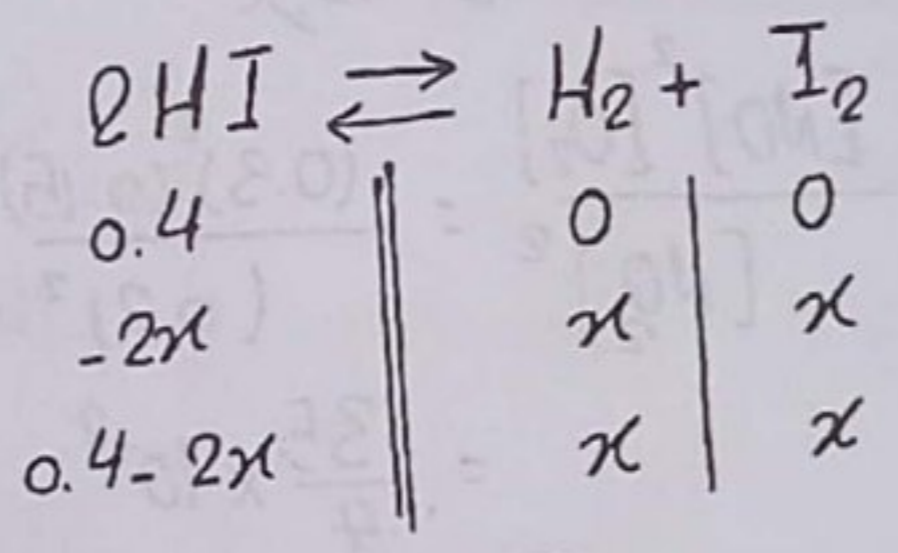 2HI ⇌ H₂ + I₂
0.4 || 0 | 0
-2x || x | x
0.4-2x || x | x